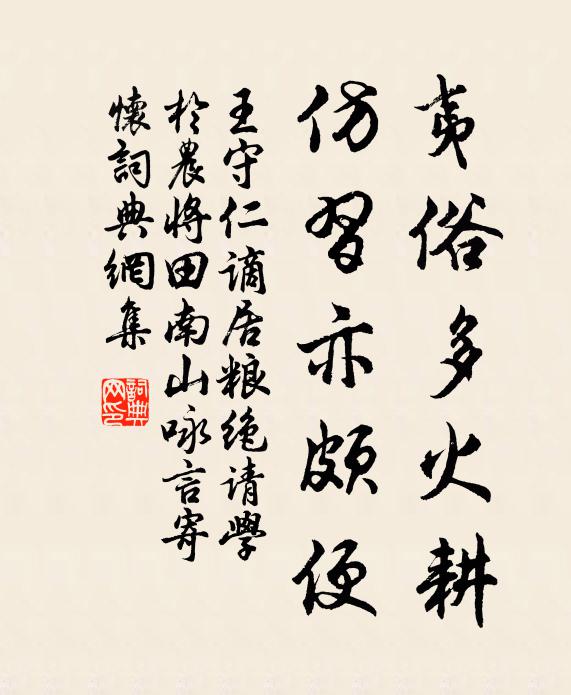 夷俗多火耕
仿習亦頗便
王守仁谪居粮绝请學
於農将田南山咏言寄
懷詞典網集
詞典
网印